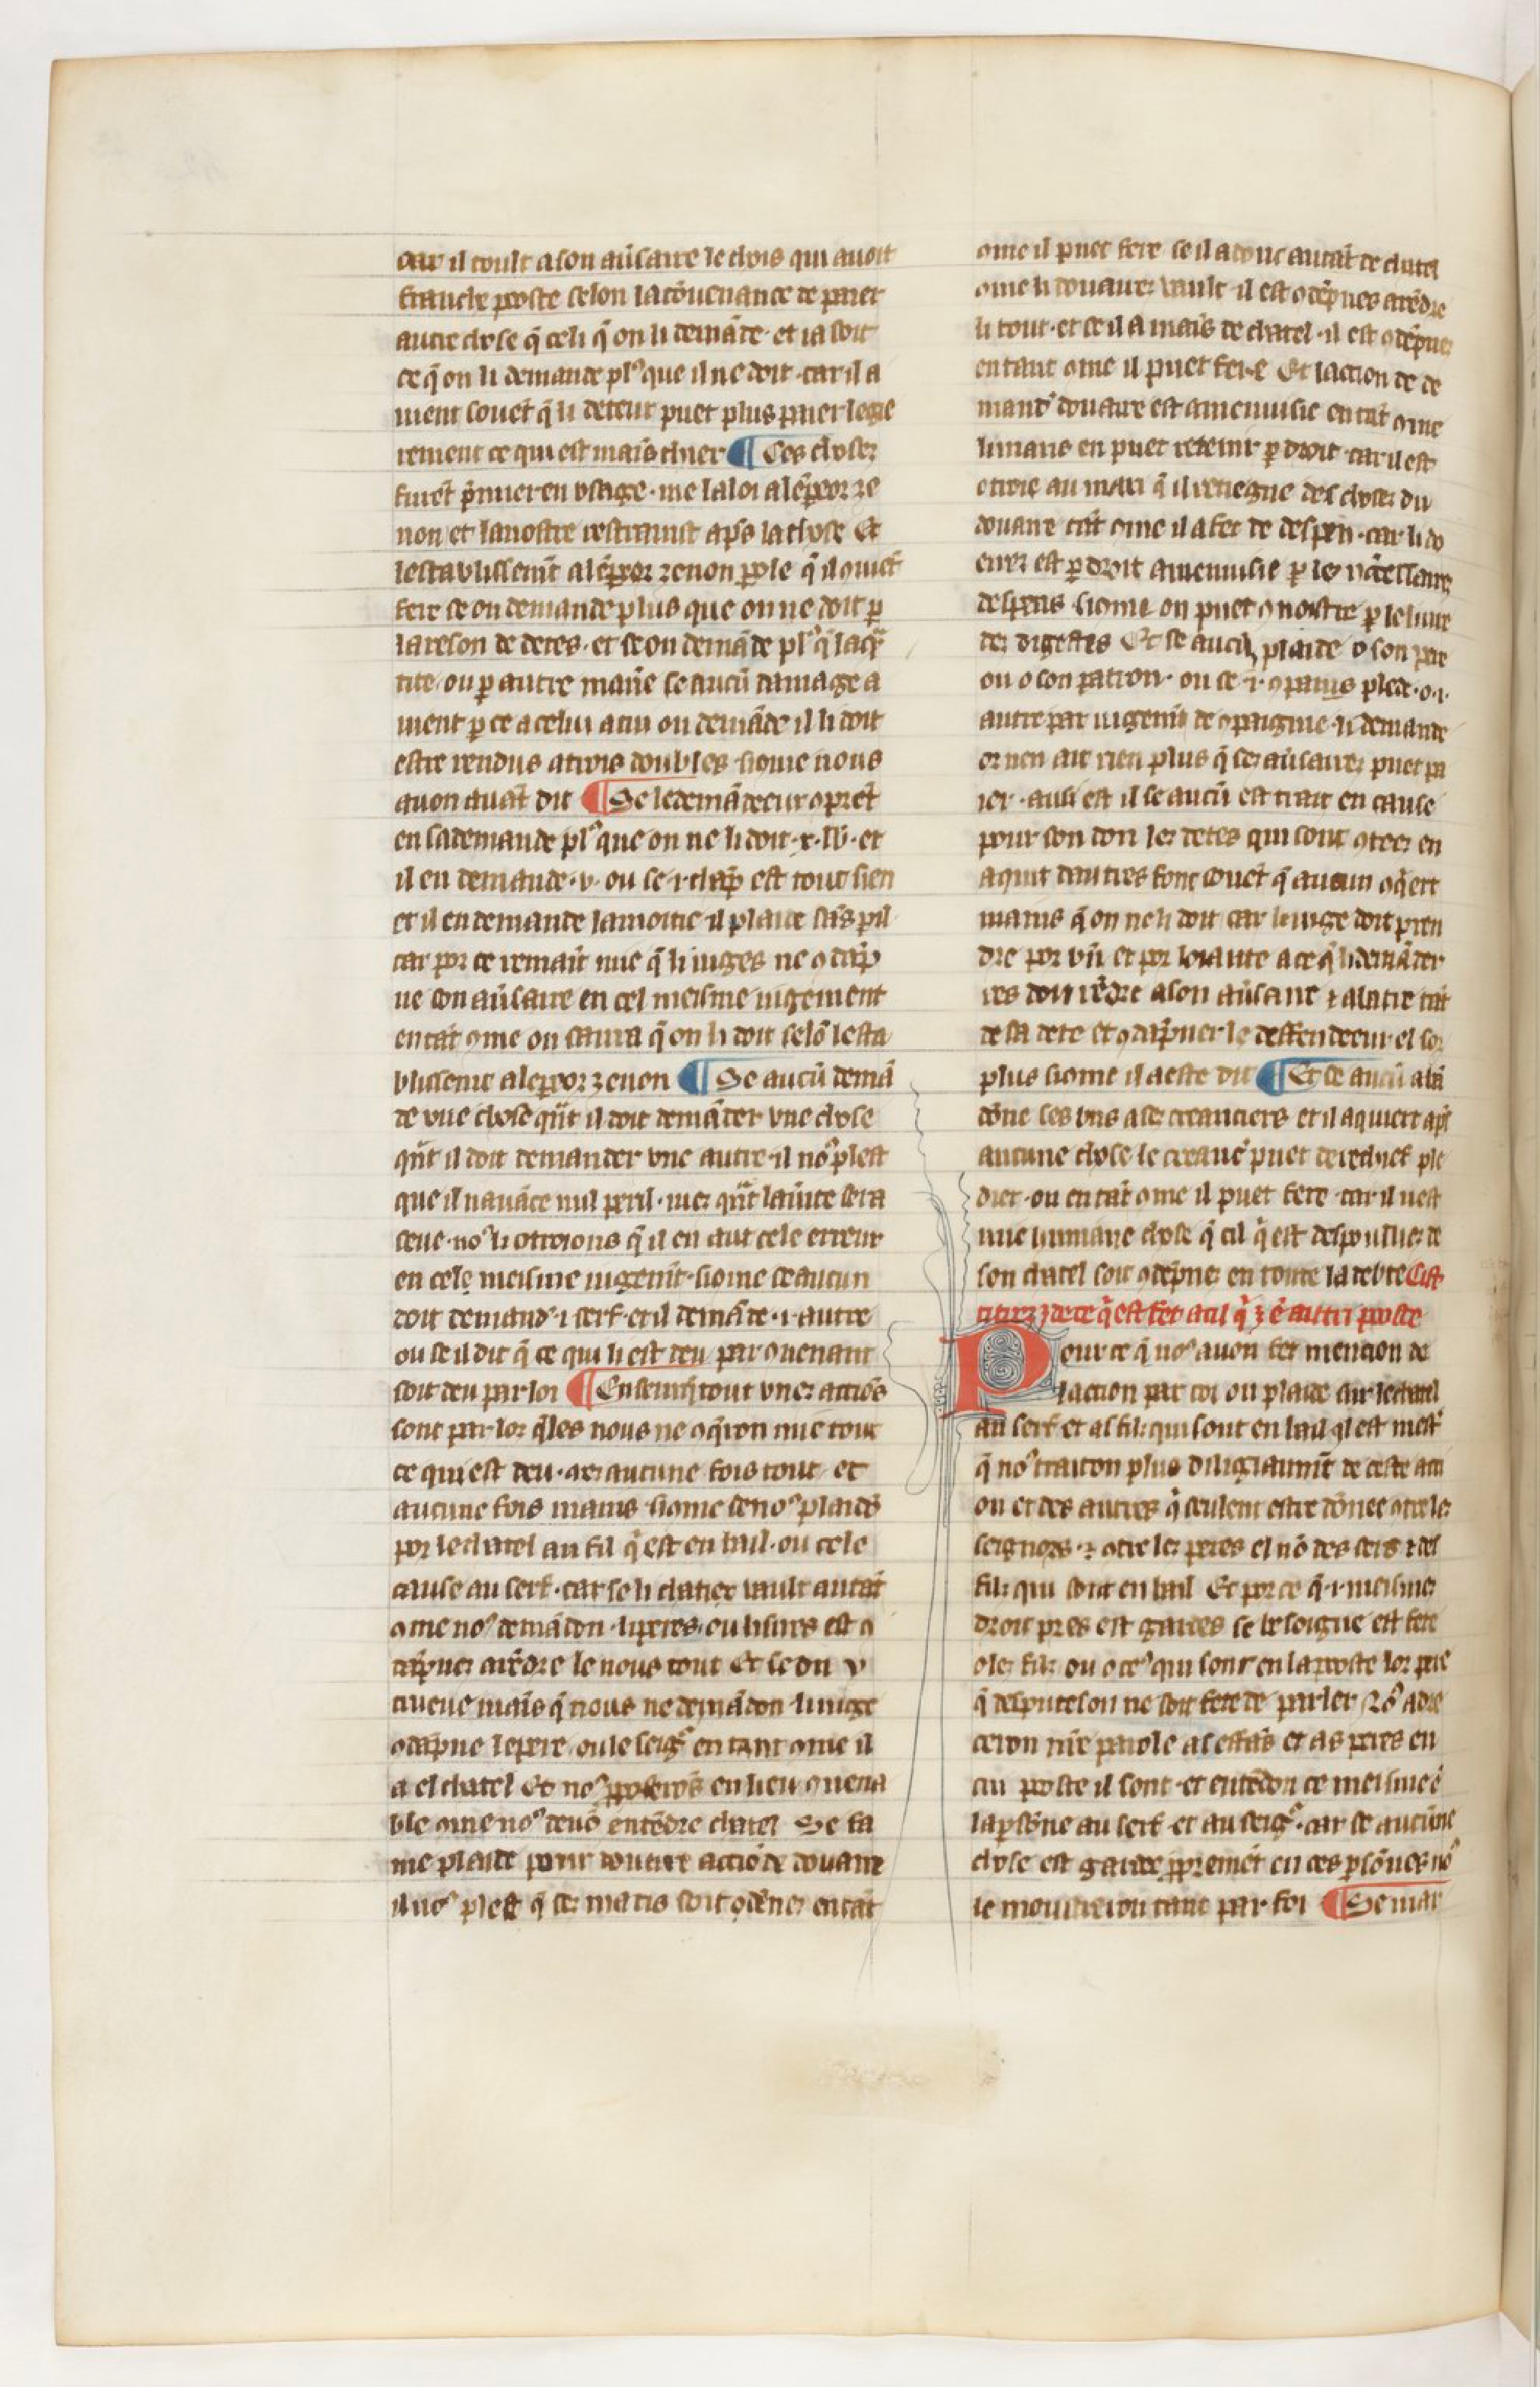 car il toult a son aūsaire le chois qui auoit
franche poste selon la cōuenance de paier
autre chose q̄ celi q̄ on li demāde · et ia soit
ce q̄ on li demande plꝰ que il ne doit · car il a
uient souēt q̄ li deteur puet plus paier legie
rement ce qui est mains chier ¶ Ces choses
furēt p̄mier en vsage · me la loi a lēpeor ze
non et la nostre restrainst apͥs la chose Et
lestablissemt̄ a lēpeor zenon ꝑole q̄ il ꝯuiēt
fere se on demande plus que on ne doit ꝑ
la reson de detes · et se on demāde plꝰ q̄ la qͣ̄
tite · ou ꝑ autre manie̅ se aucū damage a
uient ꝑ ce a celui a cui on demāde il li doit
estre rendus a trois doubles si ꝯme nous
auon auāt dit ¶ Se le demādeeur ꝯprēt
en sa demande plꝰ que on ne li doit · x · lb̄ · et
il en demande · v · ou se · i · chāp est tout sien
et il en demande la moitie il plaide sās ꝑil
car por ce remaīt mie q̄ li iuges ne ꝯdāp
ne son aūsaire en cel meisme iugement
en tāt ꝯme on saura q̄ on li doit selō lesta
blissemt̄ a lepeor zenon ¶ Se aucū demā
de vne chose qͣ̄t il doit demāder vne chose
qͣ̄t il doit demander vne autre · il noꝰ plest
que il nauāce nul peril · mes qͣ̄t la uīte sera
seue · noꝰ li ottroions q̄ il en aut cele erreur
en cele meisme iugemt̄ · si ꝯme se aucun
doit demandͬ · i · serf · et il demāde · i · autre
ou se il dit q̄ ce qui li est deu par ꝯuenant
soit deu par loi ¶ Ensemt̄q̄tout vnes actiōs
sont par lor q̄les nous ne ꝯq̄ron mie tout
ce qui est deu · aēs aucune fois tout · et
aucune fois mains si ꝯme se noꝰ plaidōs
por le chatel au fil qͥ est en bail · ou cele
cause au serf · car se li chatiex vault autāt
ꝯme noꝰ demādon · li peres ou li sires est ꝯ
dāpnes a rēdre le nous tout Et se on v
trueue mais q̄ nous ne demādon · li iuge
ꝯdāpne le pere · ou le seigͬ en tant ꝯme il
a el chatel Et noꝰ poserōs en lieu ꝯuena
ble ꝯme noꝰ deuō entēdre chatel Se fa
me plaide pour douaire actiō de douaire
il noꝰ plest q̄ ses maris soit ꝯdēnes en tāt
ꝯme il puet fere se il a donc autāt de chatel
ꝯme li douaires vault · il est ꝯdēpnes a rēdre
li tout · et se il a mais de chatel · il est ꝯdēpnes
en tant ꝯme il puet fere Et laction de de
mandͬ douaire est amenuisie en tāt ꝯme
li maris en puet retenir ꝑ droit · car il est
otroie au mari q̄ il retiegne des choses du
douaire tāt ꝯme il a fet de despen · car li do
eires est ꝑ droit amenuisie ꝑ les nc̄essaires
despens · si ꝯme on puet ꝯnoistre ꝑ le liure
des digestes Et se aucūs plaide o son pere
ou o son patron · ou se · i · ꝯpains plede · o · i ·
autre par iugemt̄ de ꝯpaignie · li demande
or nen ait rien plus q̄ ses aūsaires puet pa
ier · ausi est il se aucū est trait en cause
pour son don les detes qui sont ꝯtees en
aquit dautres sont souēt q̄ aucun ꝯq̄ert
mains q̄ on ne li doit car li iuge doit pren
dre por bn̄ et por loiaute a ce q̄ li demāder
res doit rēdre a son aūsaire ⁊ abatre tāt
de sa dete et ꝯdāpner le deffendeeur el sor
plus si ꝯme il a este dit ¶ Et se aucū abā
dōne ses bns a ses creanciers et il aquiert apͥs
aucune chose le creancͥ puet derechief ple
dier · ou en tāt ꝯme il puet fere · car il nest
mie humaine chose q̄ cil qͥ est despouillies de
son chatel soit ꝯdēpnes en toute la debte Cist
titres ꝫ de ce q̄ est fet a cil qͥ ꝫ ē autri poste
Pour ce q̄ noꝰ auon fet mention de
laction par coi on plaide sur le chatel
au serf et al filz qui sont en bail ql est mestͬ
q̄ noꝰ traiton plus diligiaumt̄ de ceste acti
on et des autres qͥ seulent estre dōnee ꝯtre les
seignors · ⁊ ꝯtre les peres el nō des sers ⁊ des
filz qui sont en bail Et por ce q̄ · i · meismes
droit pres est gardes se besoigne est fete
o les filz ou o ceꝰ qui sont en la poste lor pere
q̄ desputeson ne soit fete de parler noꝰ adre
ceron nr̄e parole a ces sers et as peres en
cui poste il sont · et entēdon ce meisme ē
la ꝑsōne au serf et au seigͬ · car se aucūne
chose est gardee ꝓpremēt en ces ꝑsōnes noꝰ
le mousterron tant par foi ¶ Se mar